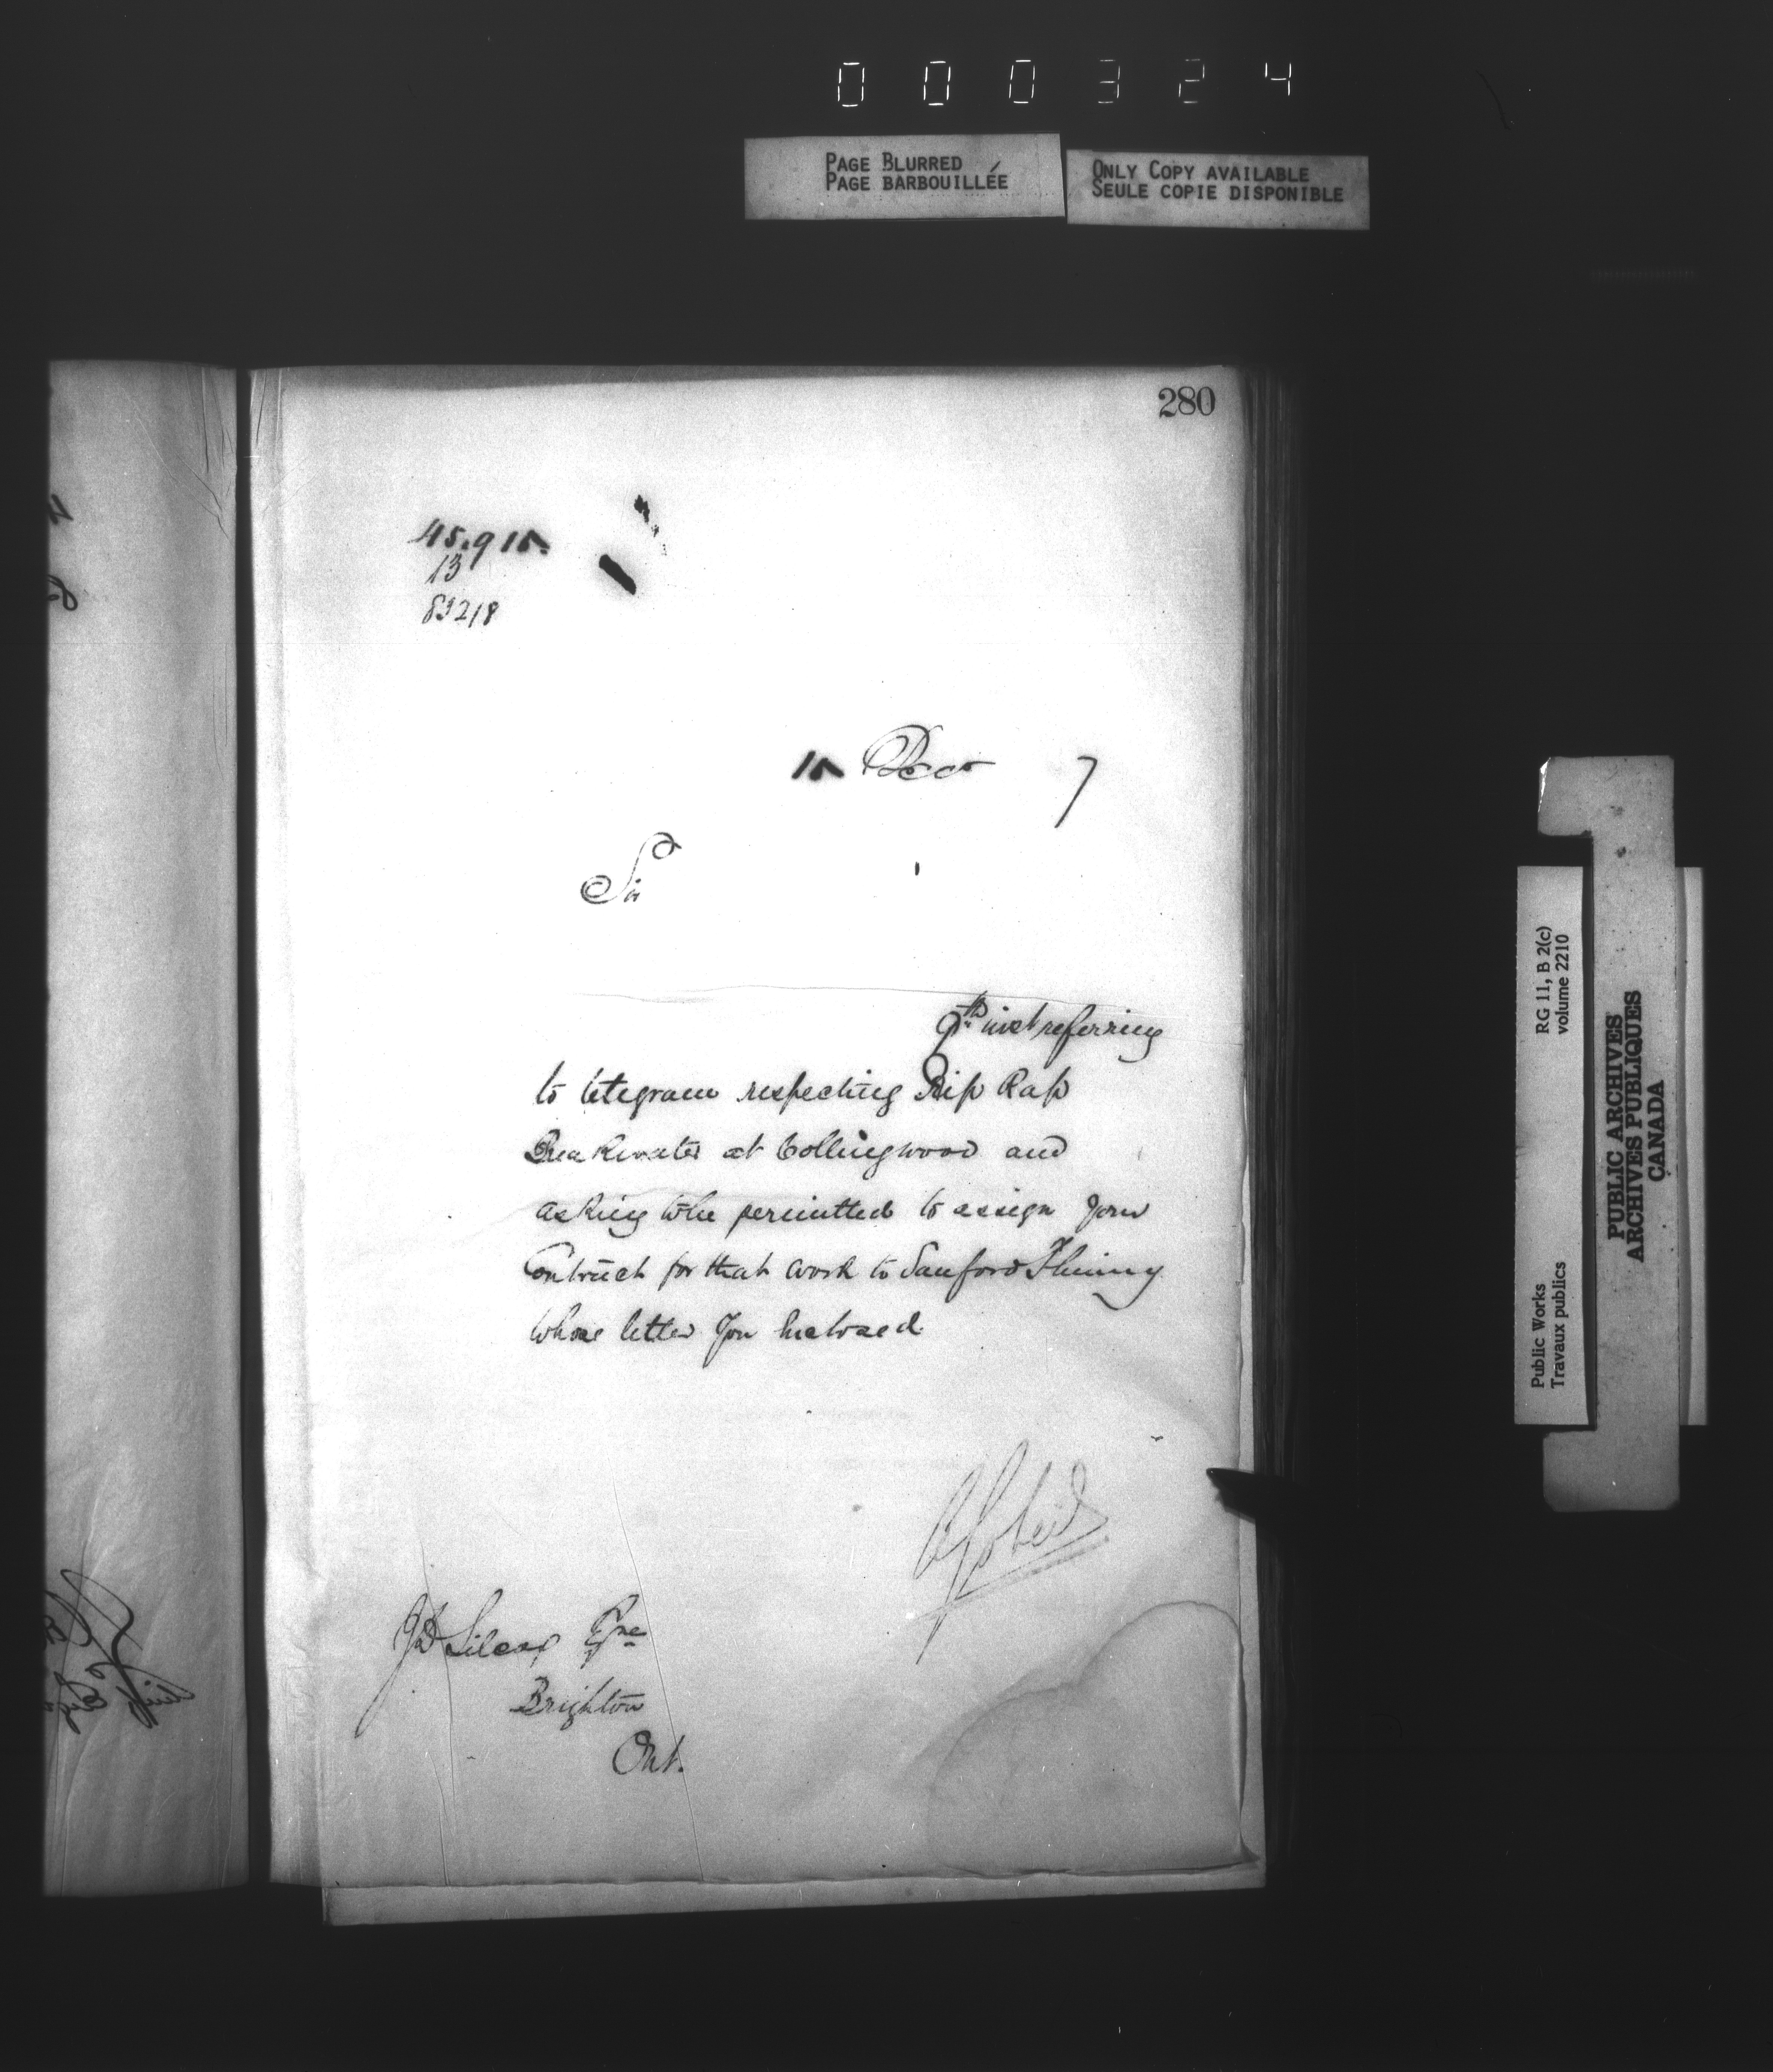 000324
PAGE BLURRED
PAGE BARBOUILLÉE
ONLY COPY AVAILABLE
SEULE COPIE DISPONIBLE
280
13
Decr 7
Sir
9th inst referring
to telegram respecting Rip Rap
Breakwater at Collingwood and
asking to be permitted to assign your
Contract for that work to Sanford
whose letter you inclosed
J D Silcox Esqre
Brighton
Ont.
RG 11, B 2(c)
volume 2210
Public Works
Travaux publics
PUBLIC ARCHIVES
ARCHIVES PUBLIQUES
CANADA